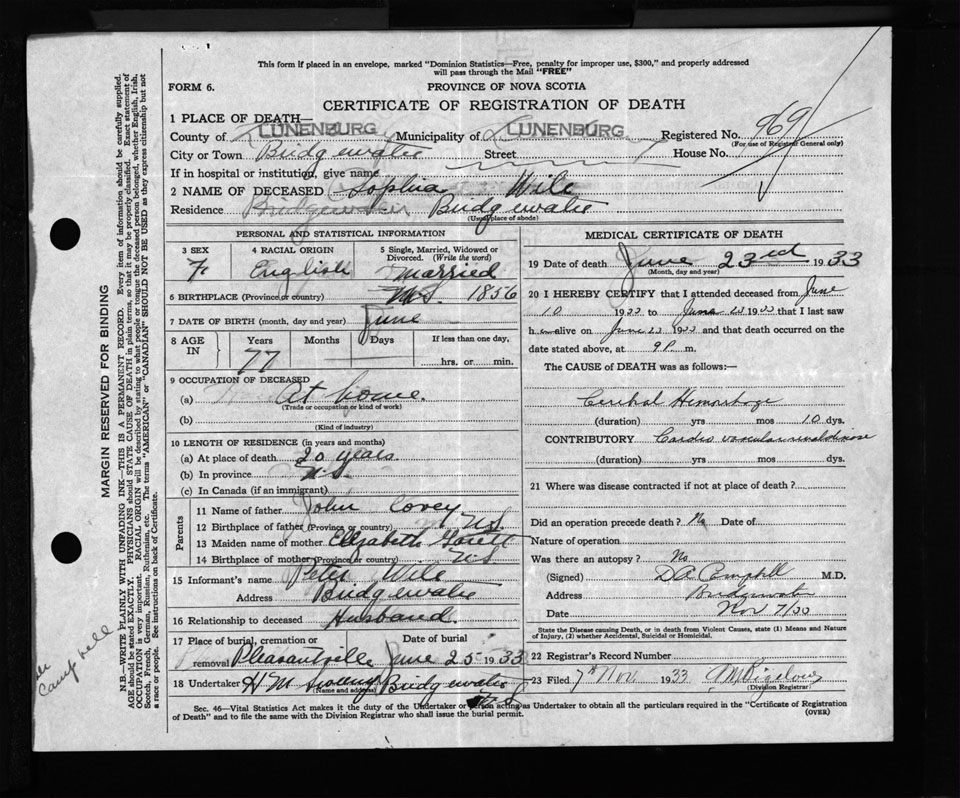 This form if placed in an envelope, marked "Dominion Statistics—Free, penalty for improper use, $300," and properly addressed
will pass through the Mail "FREE"
FORM 6.
PROVINCE OF NOVA SCOTIA
CERTIFICATE OF REGISTRATION OF DEATH
1 PLACE OF DEATH—
County of LUNENBURG Municipality of LUNENBURG Registered No. 969
(For use of Registrar General only)
City or Town Bridgewater Street House No.
If in hospital or institution, give name
2 NAME OF DECEASED Sophia Wile
Residence Bridgewater Bridgewater
(Usual place of abode)
PERSONAL AND STATISTICAL INFORMATION
3 SEX 4 RACIAL ORIGIN 5 Single, Married, Widowed or
Divorced. (Write the word)
F English Married
6 BIRTHPLACE (Province or country) N.S. 1856
7 DATE OF BIRTH (month, day and year) June
8 AGE IN Years Months Days If less than one day,
77 hrs. or min.
9 OCCUPATION OF DECEASED
(a) At home.
(Trade or occupation or kind of work)
(b)
(Kind of industry)
10 LENGTH OF RESIDENCE (in years and months)
(a) At place of death 20 years.
(b) In province N.S.
(c) In Canada (if an immigrant)
Parents
11 Name of father John Covey
12 Birthplace of father (Province or country) N.S.
13 Maiden name of mother Elizabeth
14 Birthplace of mother (Province or country) N.S
15 Informant's name Peter Wile
Address Bridgewater
16 Relationship to deceased Husband.
17 Place of burial, cremation or removal Pleasantville Date of burial June 25 1933
18 Undertaker H M Bridgewater N.S
(Name and address)
MEDICAL CERTIFICATE OF DEATH
19 Date of death June 23rd 1933
(Month, day and year)
20 I HEREBY CERTIFY that I attended deceased from June
10 1933 to June 23 1933 that I last saw
her alive on June 23 1933 and that death occurred on
date stated above, at 9 P. m.
The CAUSE of DEATH was as follows:—
Cerebral Hemorrhage
(duration) yrs mos 10 dys.
CONTRIBUTORY Cardio vascular renal disease
(duration) yrs mos dys.
21 Where was disease contracted if not at place of death?
Did an operation precede death? No Date of
Nature of operation
Was there an autopsy? No
(Signed) D A Campbell M.D.
Address Bridgewater
Date Nov 7/33
State the Disease causing Death, or in death from Violent Causes, state (1) Means and Nature
of Injury, (2) whether Accidental, Suicidal or Homicidal.
22 Registrar's Record Number
23 Filed 7th Nov 1933 M Bigelow
(Division Registrar)
Sec. 46—Vital Statistics Act makes it the duty of the Undertaker or person acting as Undertaker to obtain all the particulars required in the "Certificate of Registration
of Death" and to file the same with the Division Registrar who shall issue the burial permit.
(OVER)
MARGIN RESERVED FOR BINDING
N.B.—WRITE PLAINLY WITH UNFADING INK—THIS IS A PERMANENT RECORD. Every item of information should be carefully supplied.
AGE should be stated EXACTLY. PHYSICIANS should STATE CAUSE OF DEATH in plain terms, so that it may be properly classified. Exact statement of
OCCUPATION is very important. RACIAL ORIGIN will be described by stating to what people or tongue the deceased person belonged, whether English, Irish,
Scotch, French, German, Russian, Ruthenian, etc. The terms "AMERICAN" or "CANADIAN" SHOULD NOT BE USED as they express citizenship but not
a race or people. See instructions on back of Certificate.
Campbell